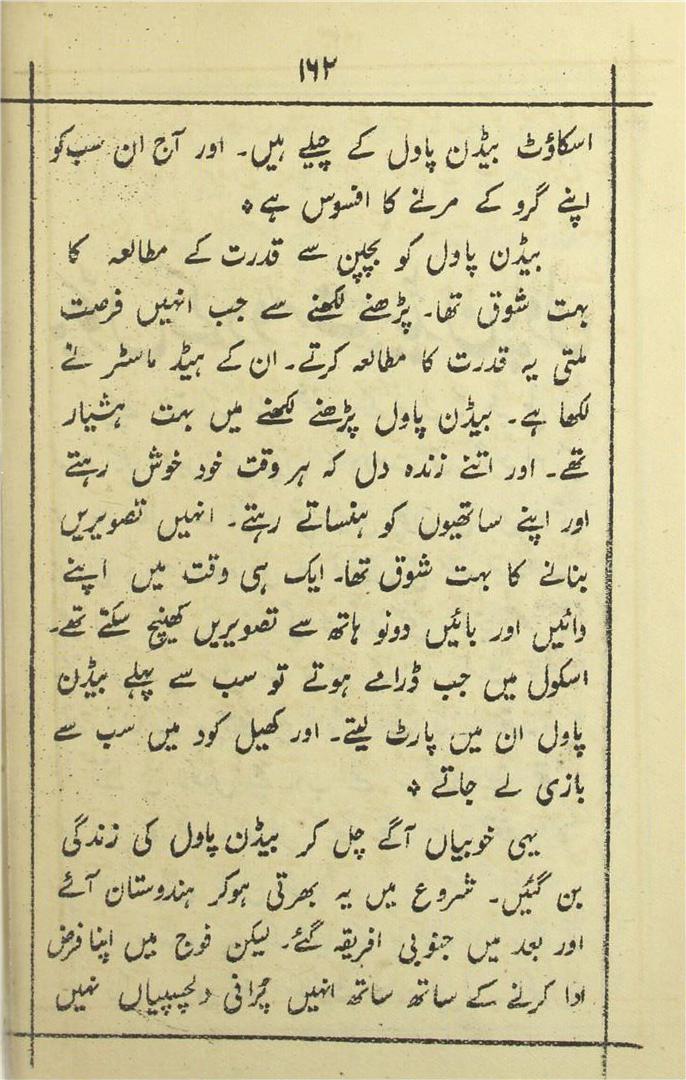 ۱۶۲
اسکاؤٹ بیڈن پاول کے چیلے ہیں۔ اور آج ان سب کو
اپنے گرو کے مرنے کا افسوس ہے *
بیڈن پاول کو بچپن سے قدرت کے مطالعہ کا
بہت شوق تھا۔ پڑھنے لکھنے سے جب انہیں فرصت
ملتی یہ قدرت کا مطالعہ کرتے۔ ان کے ہیڈ ماسٹر نے
لکھا ہے۔ بیڈن پاول پڑھنے لکھنے میں بہت ہشیار
تھے۔ اور اتنے زندہ دل کہ ہر وقت خود خوش رہتے
اور اپنے ساتھیوں کو ہنساتے رہتے۔ انہیں تصویریں
بنانے کا بہت شوق تھا۔ ایک ہی وقت میں اپنے
دائیں اور بائیں دونو ہاتھ سے تصویریں کھینچ سکتے تھے۔
اسکول میں جب ڈرامے ہوتے تو سب سے پہلے بیڈن
پاول ان میں پارٹ لیتے۔ اور کھیل کود میں سب سے
بازی لے جاتے *
یہی خوبیاں آگے چل کر بیڈن پاول کی زندگی
بن گئیں۔ شروع میں یہ بھرتی ہوکر ہندوستان آئے
اور بعد میں جنوبی افریقہ گئے۔ لیکن فوج میں اپنا فرض
ادا کرنے کے ساتھ ساتھ انہیں پُرانی دلچسپیاں نہیں